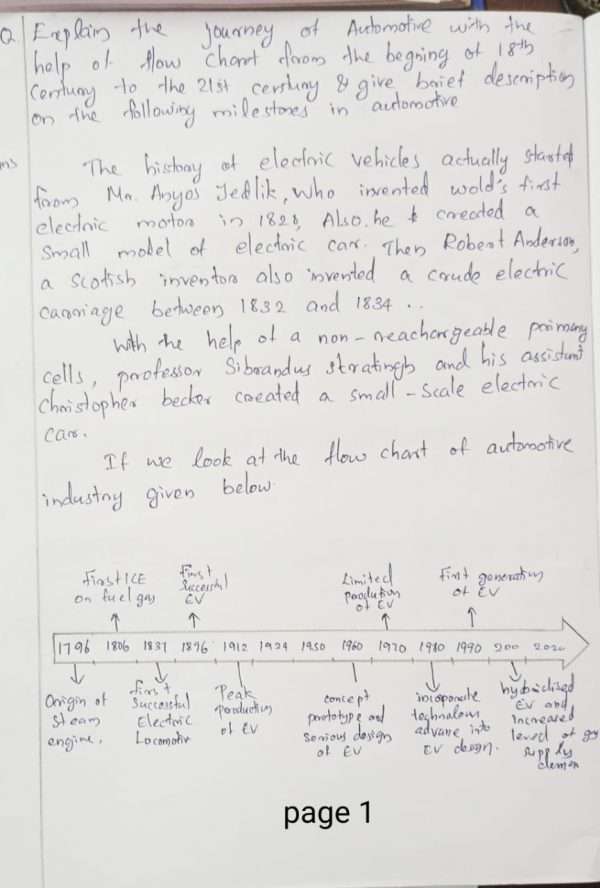 Q Explain the journey of Automotive with the
help of flow chart from the begning of 18th
century to the 21st century & give brief description
on the following milestones in automotive
ms
The history of electric vehicles actually started
from Mr. Anyos Jedlik, who invented wold's first
electric motor in 1828, Also, he created a
small model of electric car. Then Robert Anderson,
a Scotish inventor also invented a crude electric
carriage between 1832 and 1834 ..
With the help of a non-reachargeable primary
cells, professor Sibrandus stratingh and his assistant
Christopher becker created a small-scale electric
car.
If we look at the flow chart of automotive
industry given below.
First ICE
on fuel gas
First
Successful
EV
Limited
production
of EV
First generation
of EV
1796 1806 1837 1896 1912 1924 1950 1960 1970 1980 1990 200 2020
Origin of
steam
engine.
first
Successful
Electric
Locomotiv
Peak
production
of EV
concept
prototype and
serious design
of EV
incorporate
technalous
advance into
EV design.
hybridized
EV and
Increased
level of
supply
page 1